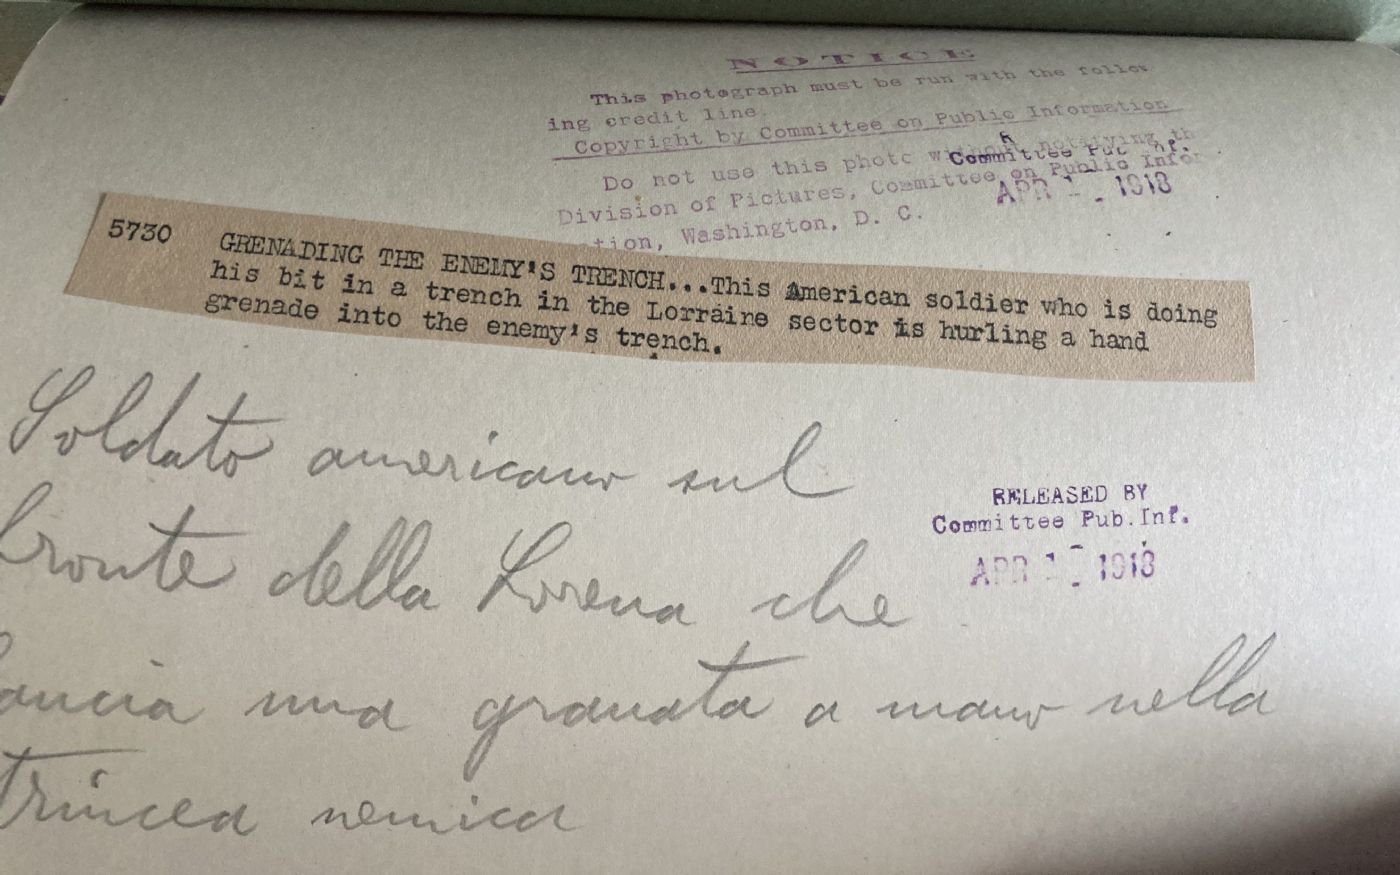 NOTICE
This photograph must be run with the follow
ing credit line
Copyright by Committee on Public Information
Do not use this photo without notifying th
Committee Pub. Inf.
Division of Pictures, Committee on Public Infor
APR 1 1918
tion, Washington, D. C.
5730 GRENADING THE ENEMY'S TRENCH...This American soldier who is doing
his bit in a trench in the Lorraine sector is hurling a hand
grenade into the enemy's trench.
Soldato americano sul
fronte della Lorena che
RELEASED BY
Committee Pub. Inf.
APR 1 1918
lancia una granata a mano nella
trincea nemica